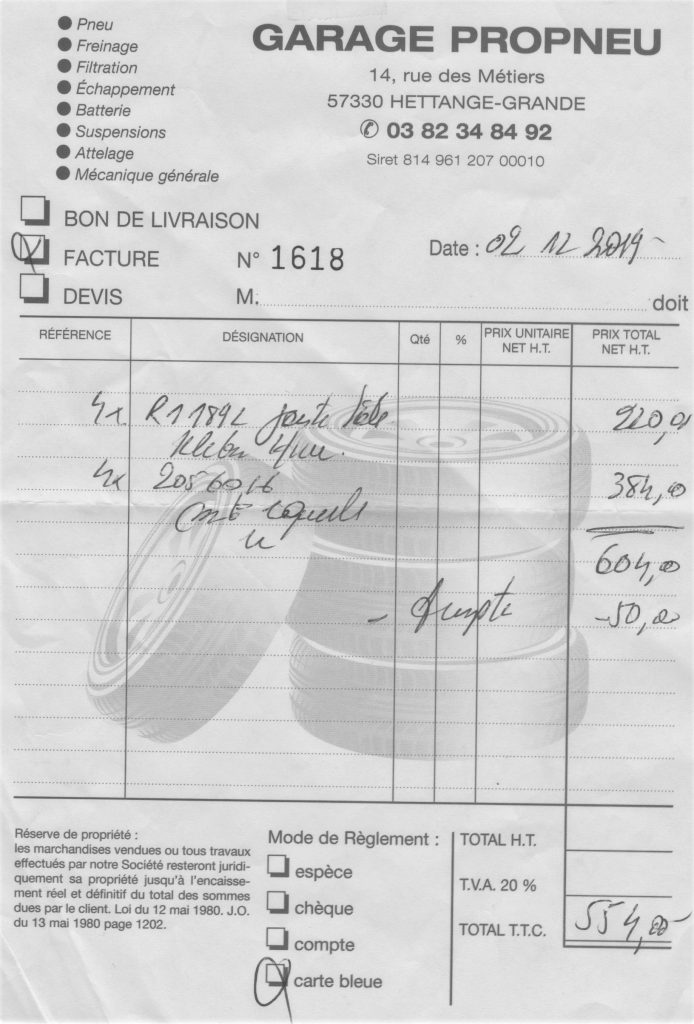 Pneu
Freinage
Filtration
Échappement
Batterie
Suspensions
Attelage
Mécanique générale
GARAGE PROPNEU
14, rue des Métiers
57330 HETTANGE-GRANDE
✆ 03 82 34 84 92
Siret 814 961 207 00010
BON DE LIVRAISON
FACTURE N° 1618
Date : 02 12 2019
DEVIS M. doit
RÉFÉRENCE DÉSIGNATION Qté % PRIX UNITAIRE NET H.T. PRIX TOTAL NET H.T.
4x R1 1892 jante tôle 220,00
4x 2056016 384,00
604,00
- Acompte -50,00
Réserve de propriété :
les marchandises vendues ou tous travaux
effectués par notre Société resteront juridi-
quement sa propriété jusqu'à l'encaisse-
ment réel et définitif du total des sommes
dues par le client. Loi du 12 mai 1980. J.O.
du 13 mai 1980 page 1202.
Mode de Règlement :
espèce
chèque
compte
carte bleue
TOTAL H.T.
T.V.A. 20 %
TOTAL T.T.C. 554,00